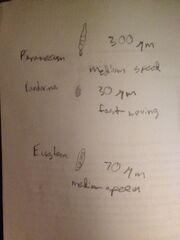 300 μm
Paramecium
medium speed
30 μm
fast moving
Euglena
70 μm
medium speed